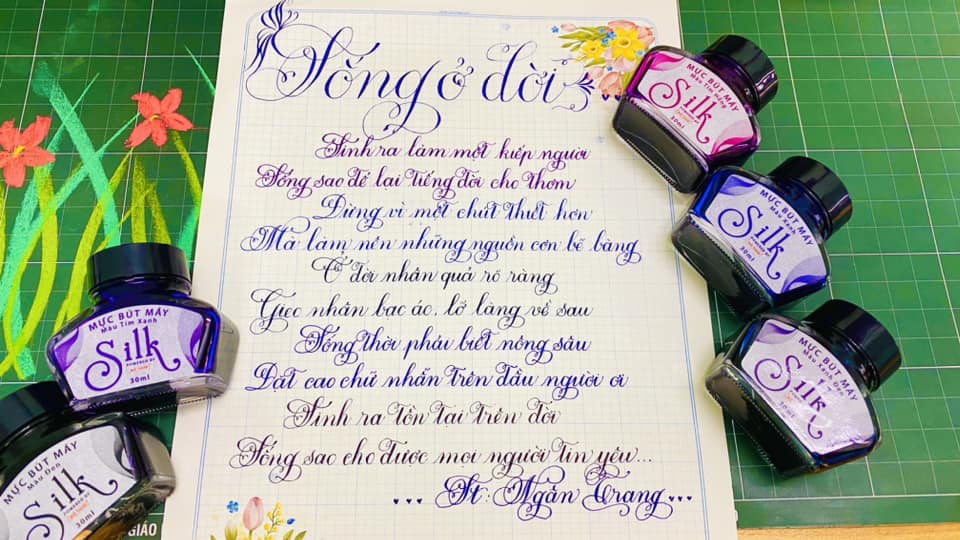 Sống ở đời
Sinh ra làm một kiếp người
Sống sao để lại tiếng đời cho thơm
Đừng vì một chút thiệt hơn
Mà làm nên những nguồn cơn bẽ bàng
Ở đời nhân quả rõ ràng
Gieo nhân bạc ác, lỡ làng về sau
Sống thời phải biết nông sâu
Đặt cao chữ nhẫn trên đầu người ơi
Sinh ra tồn tại trên đời
Sống sao cho được mọi người tin yêu...
St: Ngân Trang
MỰC BÚT MÁY
Màu Tím Hồng
Silk
30ml
MỰC BÚT MÁY
Màu Xanh
Silk
30ml
MỰC BÚT MÁY
Màu Xanh Đen
Silk
30ml
MỰC BÚT MÁY
Màu Tím Xanh
Silk
POWERED BY
30ml
MỰC BÚT MÁY
Màu Đen
Silk
30ml
GIÁO